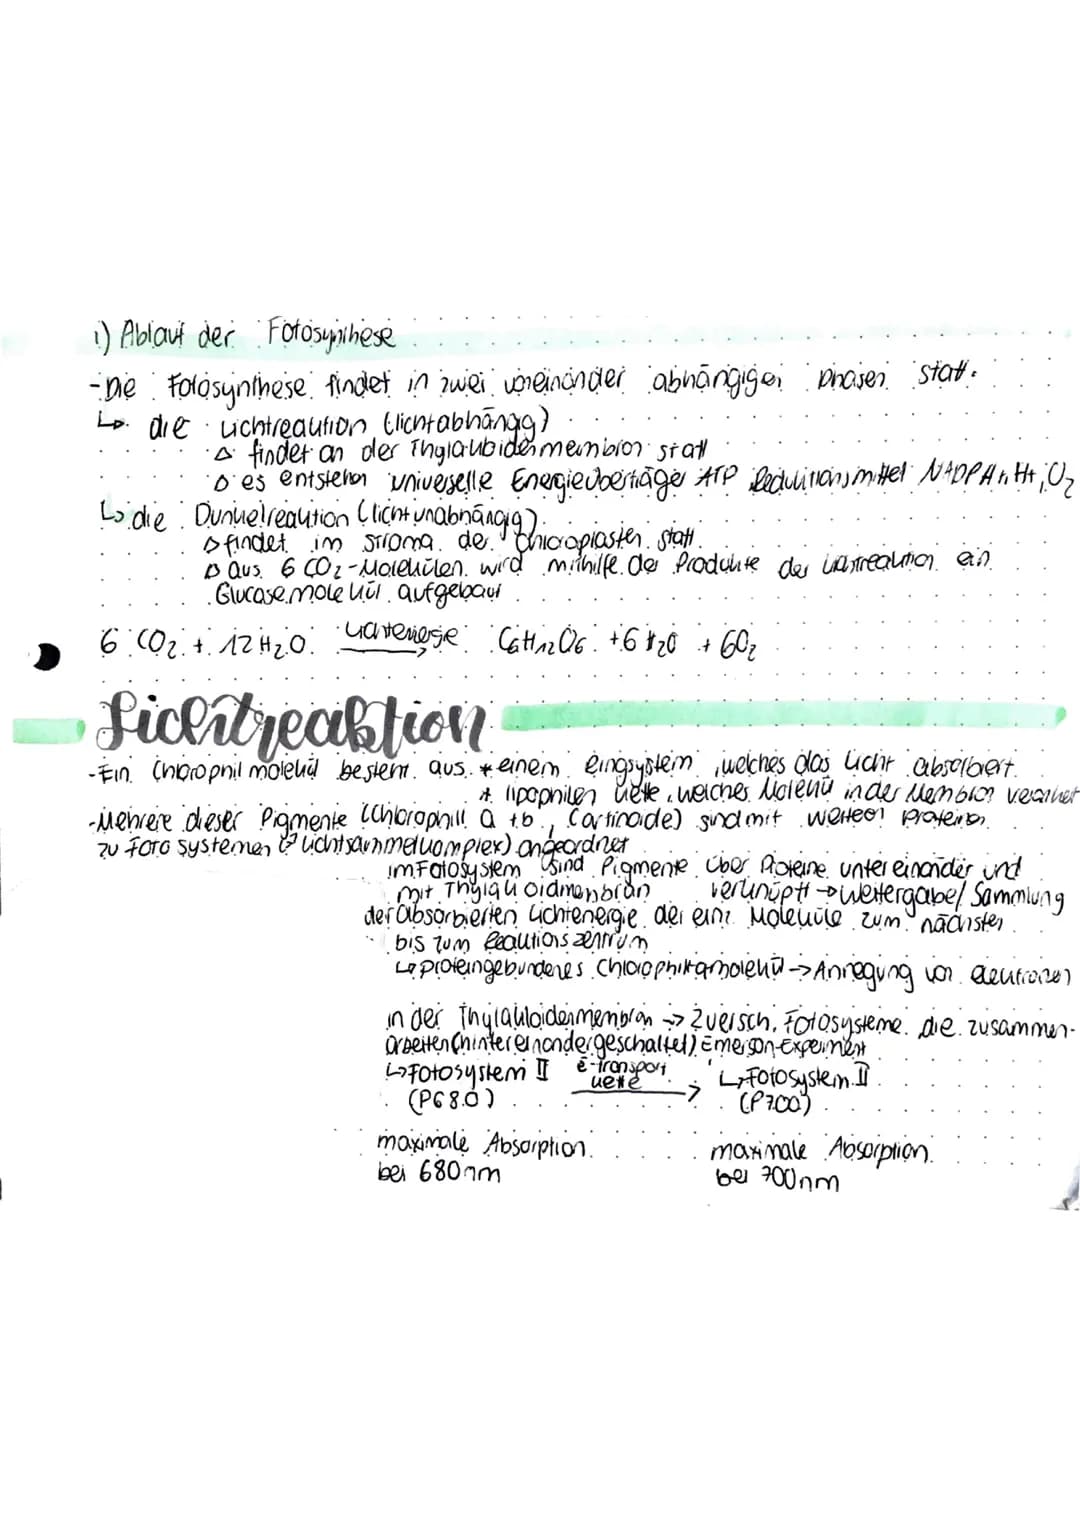 1) Ablauf der Fotosynthese
- Die Fotosynthese findet in zwei voneinander abhängigen Phasen statt.
↳ die Lichtreaktion (lichtabhängig)
▷ findet an der Thylakoidenmembran statt
▷ es entstehen universelle Energieüberträger ATP Reduktionsmittel NADPH+H+, O2
↳ die Dunkelreaktion (lichtunabhängig)
▷ findet im Stroma der Chloroplasten statt.
▷ aus 6 CO2-Molekülen wird mithilfe der Produkte der ein
Glucosemolekül aufgebaut
6 CO2 + 12 H2O Lichtenergie → C6H12O6 + 6 H2O + 6O2
Lichtreaktion
- Ein Chlorophil molekül besteht aus * einem Ringsystem, welches das Licht absorbiert.
* lipophilen Kette, welches Molekül in der Membran verankert
- Mehrere dieser Pigmente (Chlorophyll a + b, Cartinoide) sind mit weiteren Proteinen
zu Foto systemen (→ Lichtsammelkomplex) angeordnet
im Fotosystem sind Pigmente über Proteine untereinander und
mit Thylakoidmenbran verknüpft → Weitergabe/Sammlung
der absorbierten Lichtenergie der einz. Moleküle zum nächsten
bis zum Reaktionszentrum
↳ proteingebundenes Chlorophill a molekül → Anregung von Elektronen
in der Thylakloidenmembran → 2 versch. Fotosysteme die zusammen-
arbeiten (hintereinander geschaltet) Emerson-Experiment
↳ Fotosystem II e-transport kette → ↳ Fotosystem II
(P680) (P700)
maximale Absorption maximale Absorption
bei 680nm bei 700nm